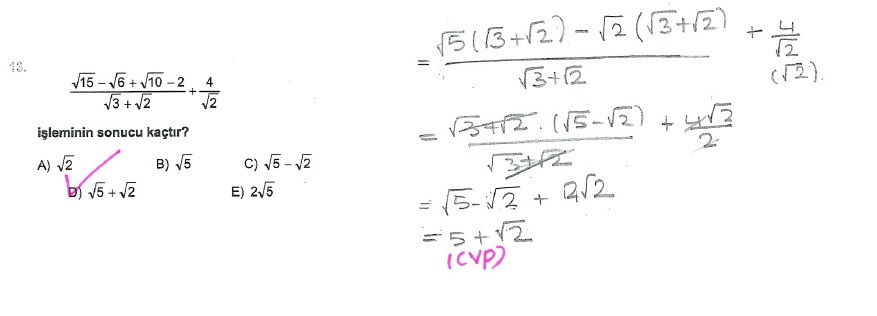 13.
√15 − √6 + √10 − 2 / √3 + √2 + 4/√2
işleminin sonucu kaçtır?
A) √2 B) √5 C) √5 − √2
D) √5 + √2 E) 2√5
= √5(√3+√2) − √2(√3+√2) / √3+√2 + 4/√2
(√2).
= √3+√2 . (√5−√2) / √3+√2 + 4√2/2
= √5−√2 + 2√2
= 5 + √2
(CVP)